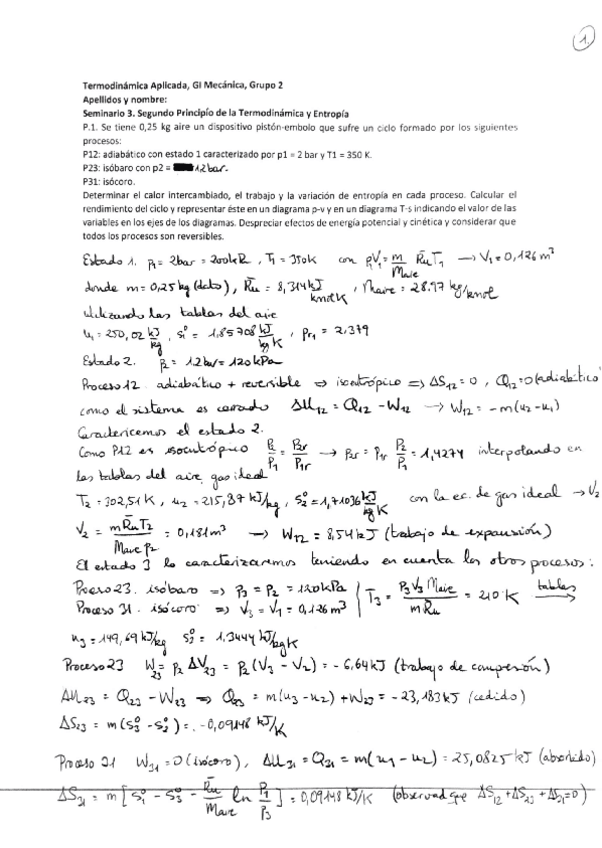 1
Termodinámica Aplicada, GI Mecánica, Grupo 2
Apellidos y nombre:
Seminario 3. Segundo Principio de la Termodinámica y Entropía
P.1. Se tiene 0,25 kg aire un dispositivo pistón-embolo que sufre un ciclo formado por los siguientes
procesos:
P12: adiabático con estado 1 caracterizado por p1 = 2 bar y T1 = 350 K.
P23: isóbaro con p2 = 1,2 bar.
P31: isócoro.
Determinar el calor intercambiado, el trabajo y la variación de entropía en cada proceso. Calcular el
rendimiento del ciclo y representar éste en un diagrama p-v y en un diagrama T-s indicando el valor de las
variables en los ejes de los diagramas. Despreciar efectos de energía potencial y cinética y considerar que
todos los procesos son reversibles.
Estado 1. p₁ = 2bar = 200kPa, T₁ = 350K con p₁V₁ = m/Maire R̄u T₁ → V₁ = 0,126 m³
donde m = 0,25 kg (dato), R̄u = 8,314 kJ/kmol K, Maire = 28.97 kg/kmol
Utilizando las tablas del aire
u₁ = 250,02 kJ/kg, s₁° = 1,85708 kJ/kg K, pr₁ = 2,379
Estado 2. p₂ = 1.2bar = 120kPa
Proceso 12 adiabático + reversible ⇒ isentrópico ⇒ ΔS₁₂ = 0, Q₁₂ = 0 (adiabático)
como el sistema es cerrado ΔU₁₂ = Q₁₂ - W₁₂ → W₁₂ = -m(u₂-u₁)
Caractericemos el estado 2.
Como P12 es isoentrópico P₂/P₁ = P₂r/P₁r → P₂r = P₁r P₂/P₁ = 1,4274 interpolando en
las tablas del aire gas ideal
T₂ = 302,51 K, u₂ = 215,87 kJ/kg, s₂° = 1,71036 kJ/kg K con la ec. de gas ideal → V₂
V₂ = m R̄u T₂/Maire p₂ = 0,181 m³ → W₁₂ = 8,54 kJ (trabajo de expansión)
El estado 3 lo caracterizaremos teniendo en cuenta los otros procesos:
Proceso 23. isóbaro ⇒ p₃ = p₂ = 120kPa
Proceso 31. isócoro ⇒ V₃ = V₁ = 0,126 m³ | T₃ = P₃V₃ Maire/m Ru = 210 K tablas →
u₃ = 149,69 kJ/kg s₃° = 1,3444 kJ/kg K
Proceso 23 W₂₃ = p₂ ΔV₂₃ = p₂(V₃ - V₂) = -6,64 kJ (trabajo de compresión)
ΔU₂₃ = Q₂₃ - W₂₃ ⇒ Q₂₃ = m(u₃-u₂) + W₂₃ = -23,183 kJ (cedido)
ΔS₂₃ = m(s₃° - s₂°) = -0,09148 kJ/K
Proceso 31 W₃₁ = 0 (isócoro), ΔU₃₁ = Q₃₁ = m(u₁ - u₂) = 25,0825 kJ (absorbido)
ΔS₃₁ = m [s₁° - s₃° - R̄u/Maire ln P₁/P₃] = 0,09148 kJ/K (observad que ΔS₁₂ + ΔS₂₃ + ΔS₃₁ = 0)